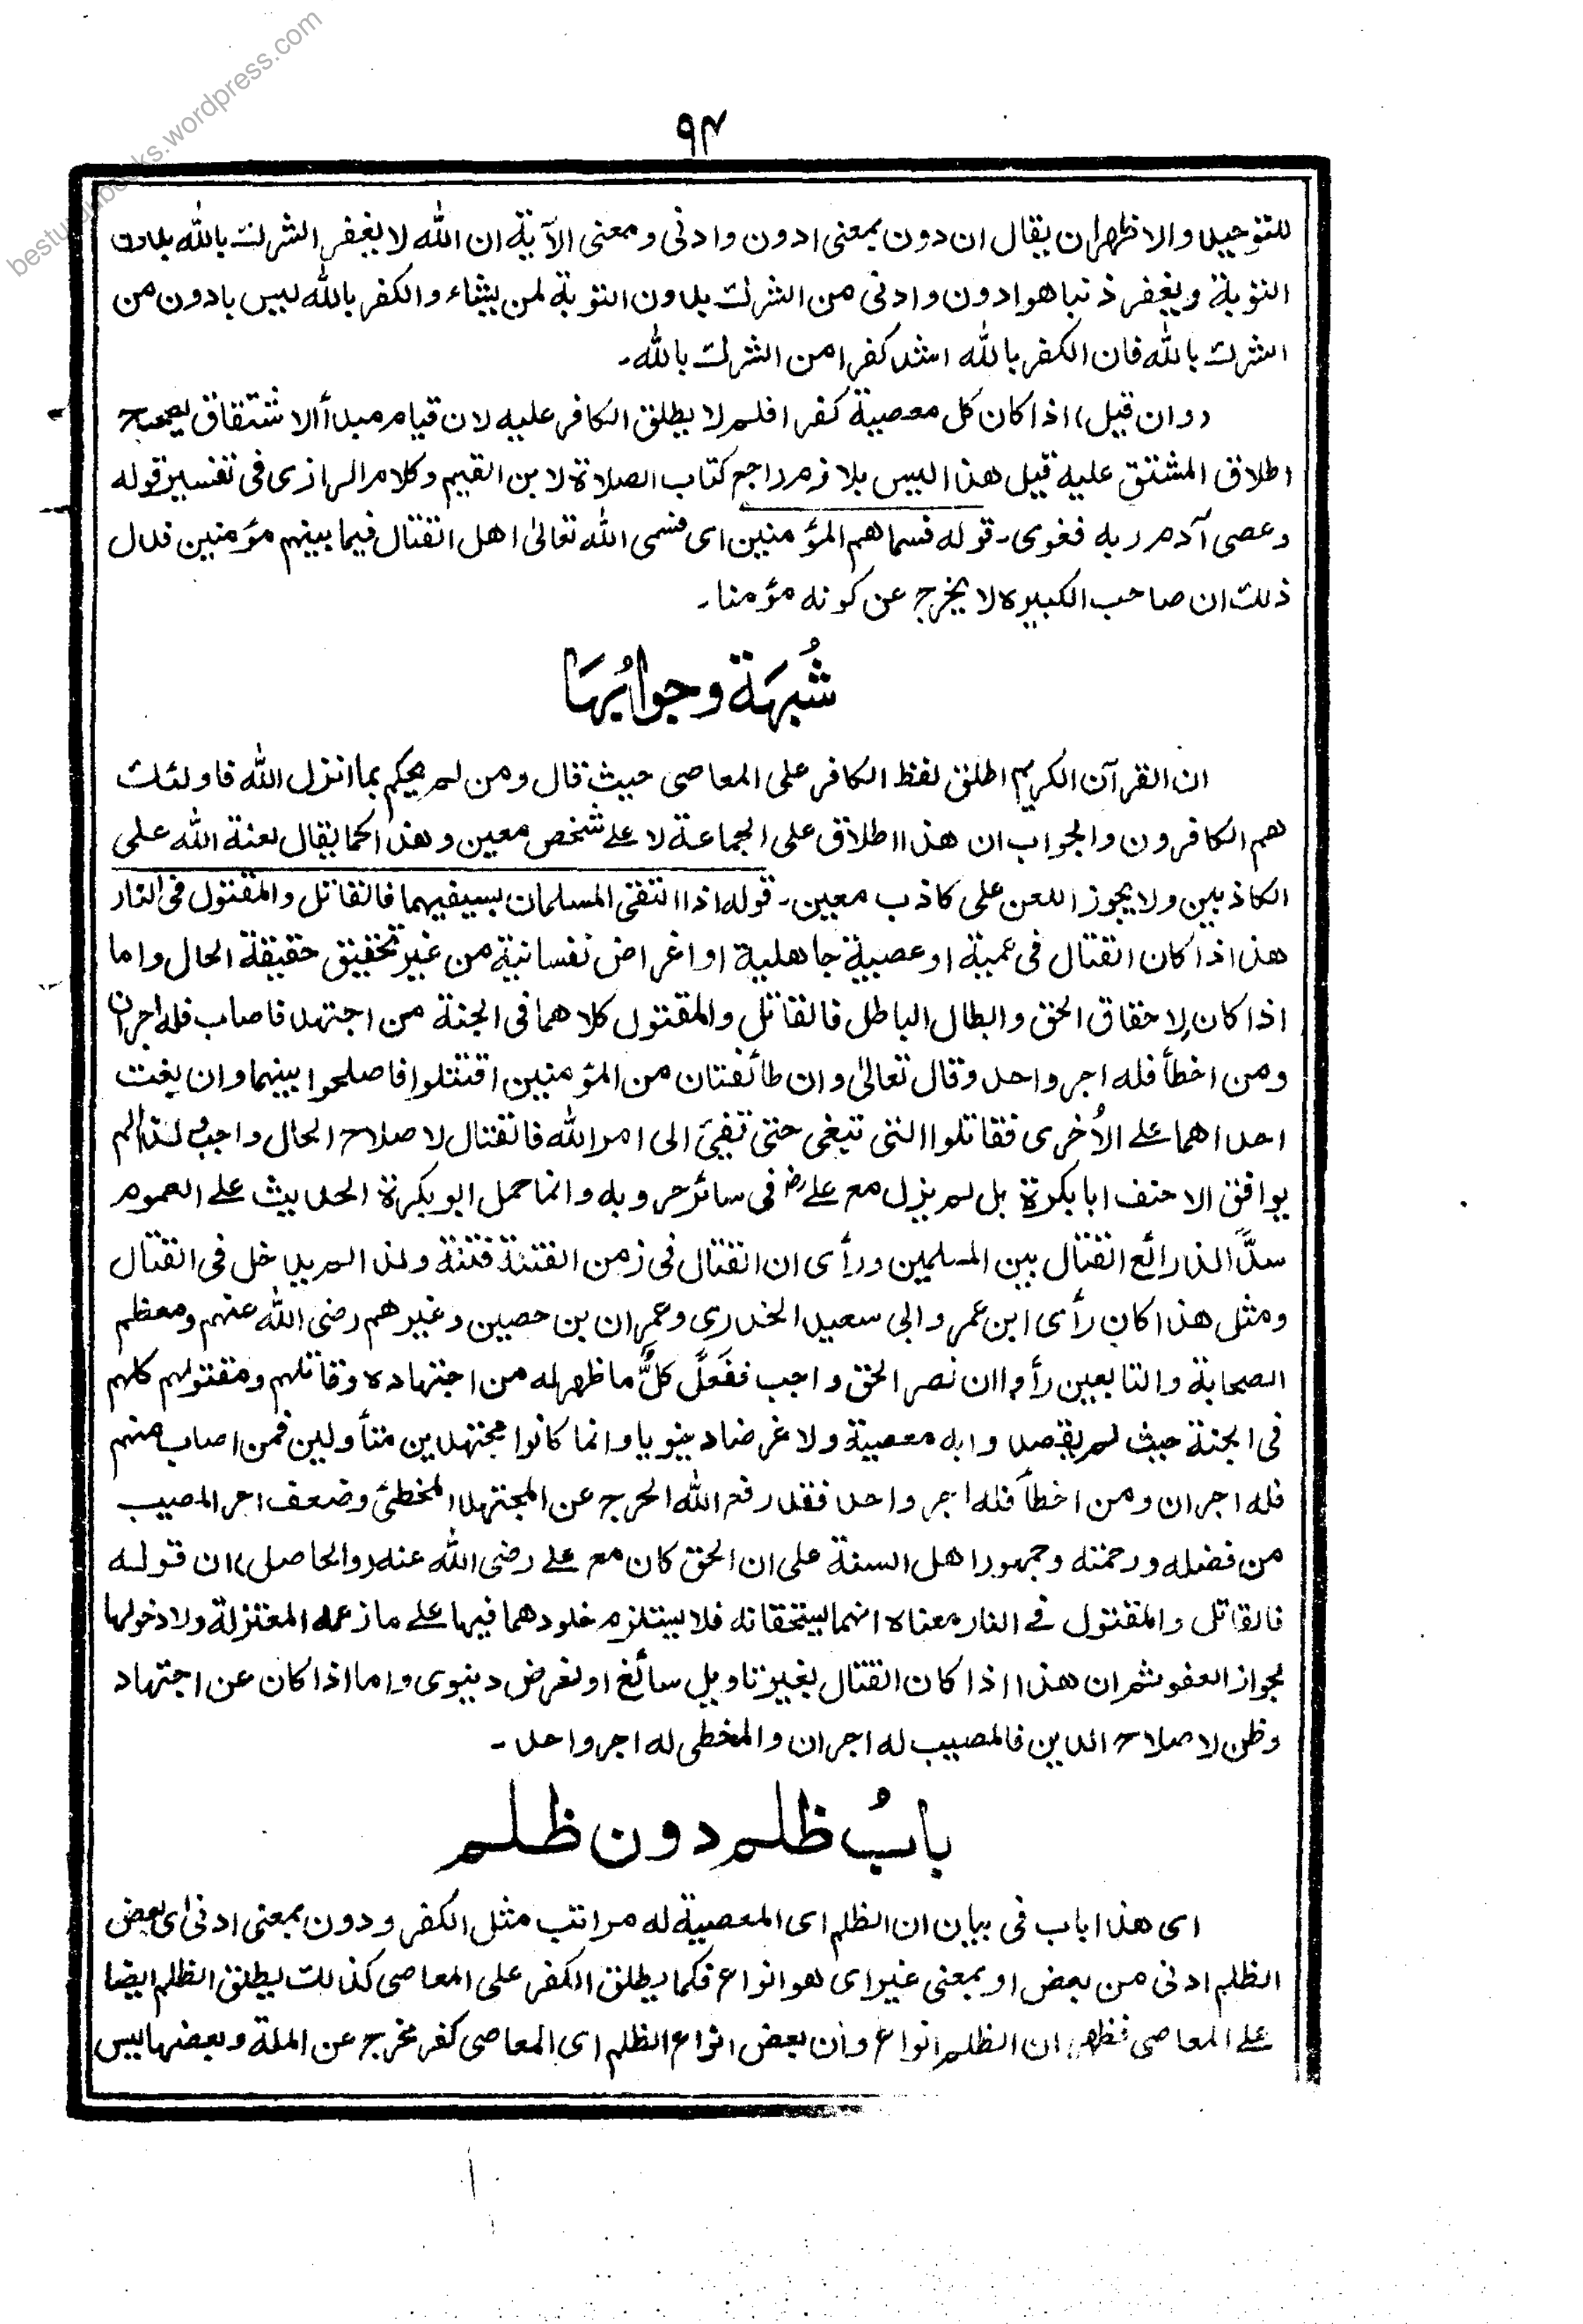 besturdubooks.wordpress.com
۹۴
للتوحيد والاظهران يقال ان دون بمعنى ادون وادنى ومعنى الآية ان الله لا يغفر الشرك بالله بدون
التوبة ويغفر ذنبا هو ادون وادنى من الشرك بدون التوبة لمن يشاء والكفر بالله ليس بادون من
الشرك بالله فان الكفر بالله اشد كفرا من الشرك بالله۔
(وان قيل) اذا كان كل معصية كفرا فلم لا يطلق الكافر عليه لان قيام مبدأ الاشتقاق يصحح
اطلاق المشتق عليه قيل هذا ليس بلازم راجع كتاب الصلاة لابن القيم وكلام الرازى فى تفسير قوله
وعصى آدم ربه فغوى۔ قوله فسماهم المؤمنين اى فسمى الله تعالىٰ اهل القتال فيما بينهم مؤمنين فدل
ذلك ان صاحب الكبيره لا يخرج عن كونه مؤمنا۔
شُبهَة وجوابُهَا
ان القرآن الكريم اطلق لفظ الكافر على المعاصى حيث قال ومن لم يحكم بما انزل الله فاولئك
هم الكافرون والجواب ان هذا اطلاق على الجماعة لا على شخص معين وهذا كما يقال لعنة الله على
الكاذبين ولا يجوز اللعن على كاذب معين۔ قوله اذا التقى المسلمان بسيفيهما فالقاتل والمقتول فى النار
هذا اذا كان القتال فى عمية او عصبية جاهلية او اغراض نفسانية من غير تحقيق حقيقة الحال واما
اذا كان لاحقاق الحق وابطال الباطل فالقاتل والمقتول كلاهما فى الجنة من اجتهد فاصاب فله اجران
ومن اخطأ فله اجر واحد وقال تعالىٰ وان طائفتان من المؤمنين اقتتلوا فاصلحوا بينهما وان بغت
احداهما على الأخرى فقاتلوا التى تبغى حتى تفئ الى امر الله فالقتال لاصلاح الحال واجب لذا لم
يوافق الاحنف ابا بكرة بل لم يزل مع علىؓ فى سائر حروبه وانما حمل ابو بكرة الحديث على العموم
سدًّا لذرائع القتال بين المسلمين ورأى ان القتال فى زمن الفتنة فتنة ولذا لم يدخل فى القتال
ومثل هذا كان رأى ابن عمر وابى سعيد الخدرى وعمران بن حصين وغيرهم رضى الله عنهم ومعظم
الصحابة والتابعين رأوا ان نصر الحق واجب ففَعَلَ كلٌّ ما ظهر له من اجتهاده وقاتلهم ومقتولهم كلهم
فى الجنة حيث لم يقصدوا به معصية ولا غرضا دينويا وانما كانوا مجتهدين متأولين فمن اصاب منهم
فله اجران ومن اخطأ فله اجر واحد فقد رفع الله الحرج عن المجتهد المخطئ وضعف اجر المصيب
من فضله ورحمته وجمهور اهل السنة على ان الحق كان مع على رضى الله عنه (والحاصل) ان قوله
فالقاتل والمقتول فى النار معناه انهما يستحقانه فلا يستلزم خلودهما فيها على ما زعمه المعتزلة ولا دخولها
لجواز العفو ثم ان هذا اذا كان القتال بغير تاويل سائغ او لغرض دينوى واما اذا كان عن اجتهاد
وظن لاصلاح الدين فالمصيب له اجران والمخطى له اجر واحد۔
بابُ ظلم دون ظلم
اى هذا باب فى بيان ان الظلم اى المعصية له مراتب مثل الكفر ودون بمعنى ادنى اى بعض
الظلم ادنى من بعض او بمعنى غير اى هو انواع فكما يطلق الكفر على المعاصى كذلك يطلق الظلم ايضا
على المعاصى فظهر ان الظلم انواع وان بعض انواع الظلم اى المعاصى كفر مخرج عن الملة وبعضها ليس